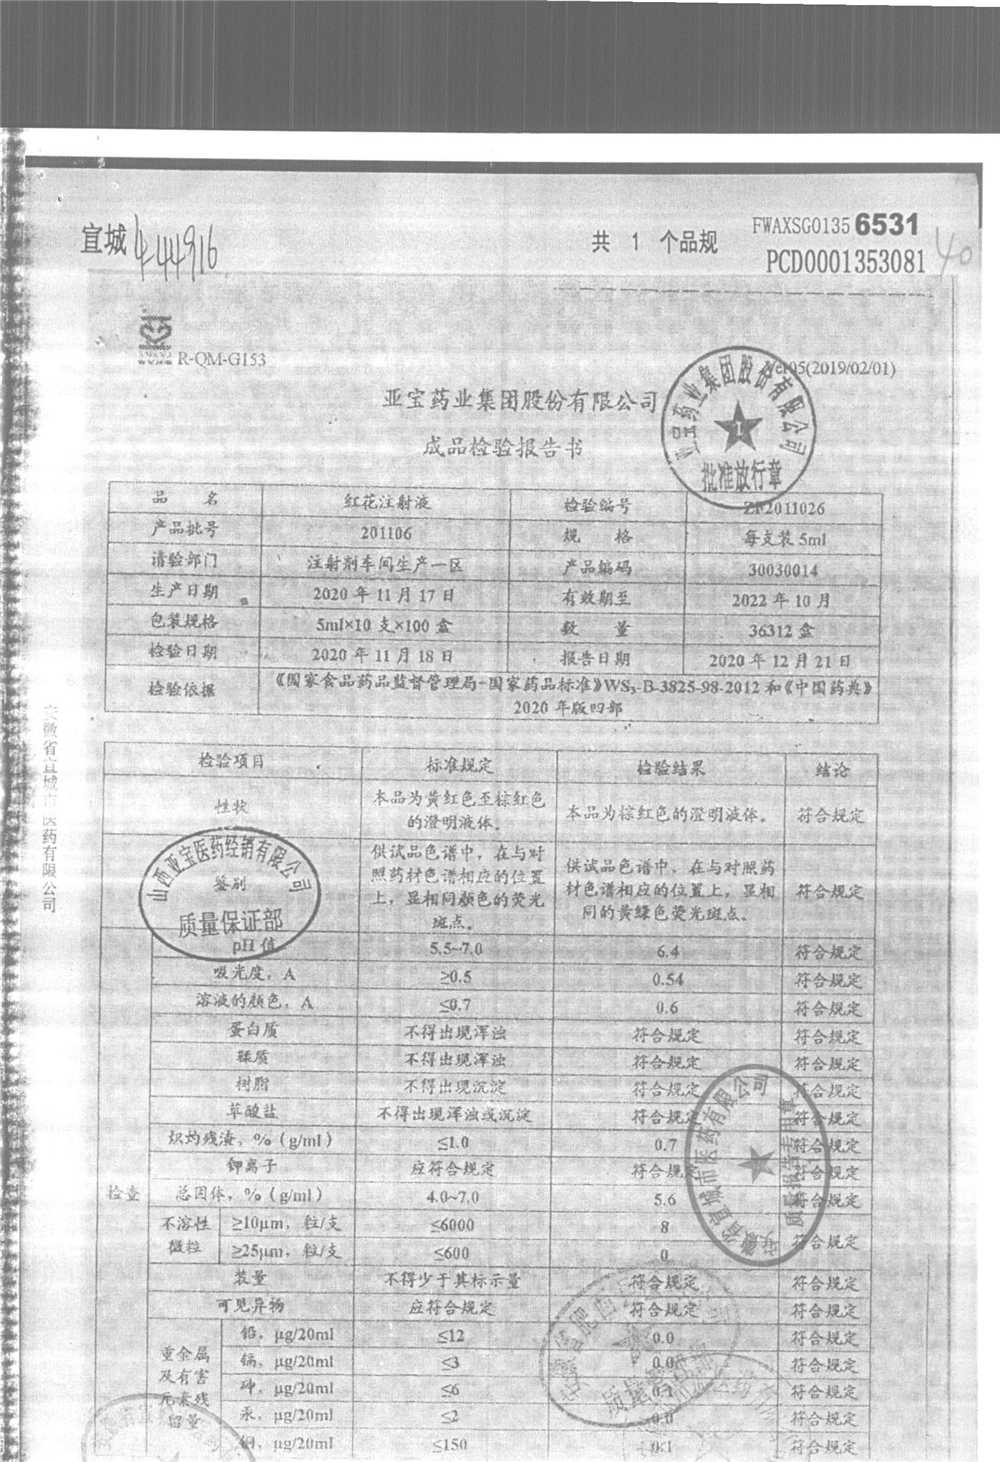 宣城
444916
共 1 个品规
FWAXSG0135 6531
PCD0001353081
40
R-QM-G153
Ver05(2019/02/01)
亚宝药业集团股份有限公司
成品检验报告书
亚宝药业集团股份有限公司
1
批准放行章
品 名 红花注射液 检验编号 ZP2011026
产品批号 201106 规 格 每支装 5ml
请验部门 注射剂车间生产一区 产品编码 30030014
生产日期 2020 年 11 月 17 日 有效期至 2022 年 10 月
包装规格 5ml×10 支×100 盒 数 量 36312 盒
检验日期 2020 年 11 月 18 日 报告日期 2020 年 12 月 21 日
检验依据 《国家食品药品监督管理局-国家药品标准》WS₃-B-3825-98-2012 和《中国药典》
2020 年版四部
检验项目 标准规定 检验结果 结论
性状 本品为黄红色至棕红色
的澄明液体。 本品为棕红色的澄明液体。 符合规定
鉴别 供试品色谱中，在与对
照药材色谱相应的位置
上，显相同颜色的荧光
斑点。 供试品色谱中，在与对照药
材色谱相应的位置上，显相
同的黄绿色荧光斑点。 符合规定
山西亚宝医药经销有限公司
质量保证部
检查
pH 值 5.5~7.0 6.4 符合规定
吸光度，A ≥0.5 0.54 符合规定
溶液的颜色，A ≤0.7 0.6 符合规定
蛋白质 不得出现浑浊 符合规定 符合规定
鞣质 不得出现浑浊 符合规定 符合规定
树脂 不得出现沉淀 符合规定 符合规定
草酸盐 不得出现浑浊或沉淀 符合规定 符合规定
炽灼残渣，%（g/ml） ≤1.0 0.7 符合规定
钾离子 应符合规定 符合规定 符合规定
总固体，%（g/ml） 4.0~7.0 5.6 符合规定
不溶性
微粒
≥10μm，粒/支 ≤6000 8 符合规定
≥25μm，粒/支 ≤600 0
装量 不得少于其标示量 符合规定 符合规定
可见异物 应符合规定 符合规定 符合规定
重金属
及有害
元素残
留量
铅，μg/20ml ≤12 0.0 符合规定
镉，μg/20ml ≤3 0.0 符合规定
砷，μg/20ml ≤6 0.1 符合规定
汞，μg/20ml ≤2 0.0 符合规定
铜，μg/20ml ≤150 0.1 符合规定
安徽省宣城市医药有限公司
质量报告专用章